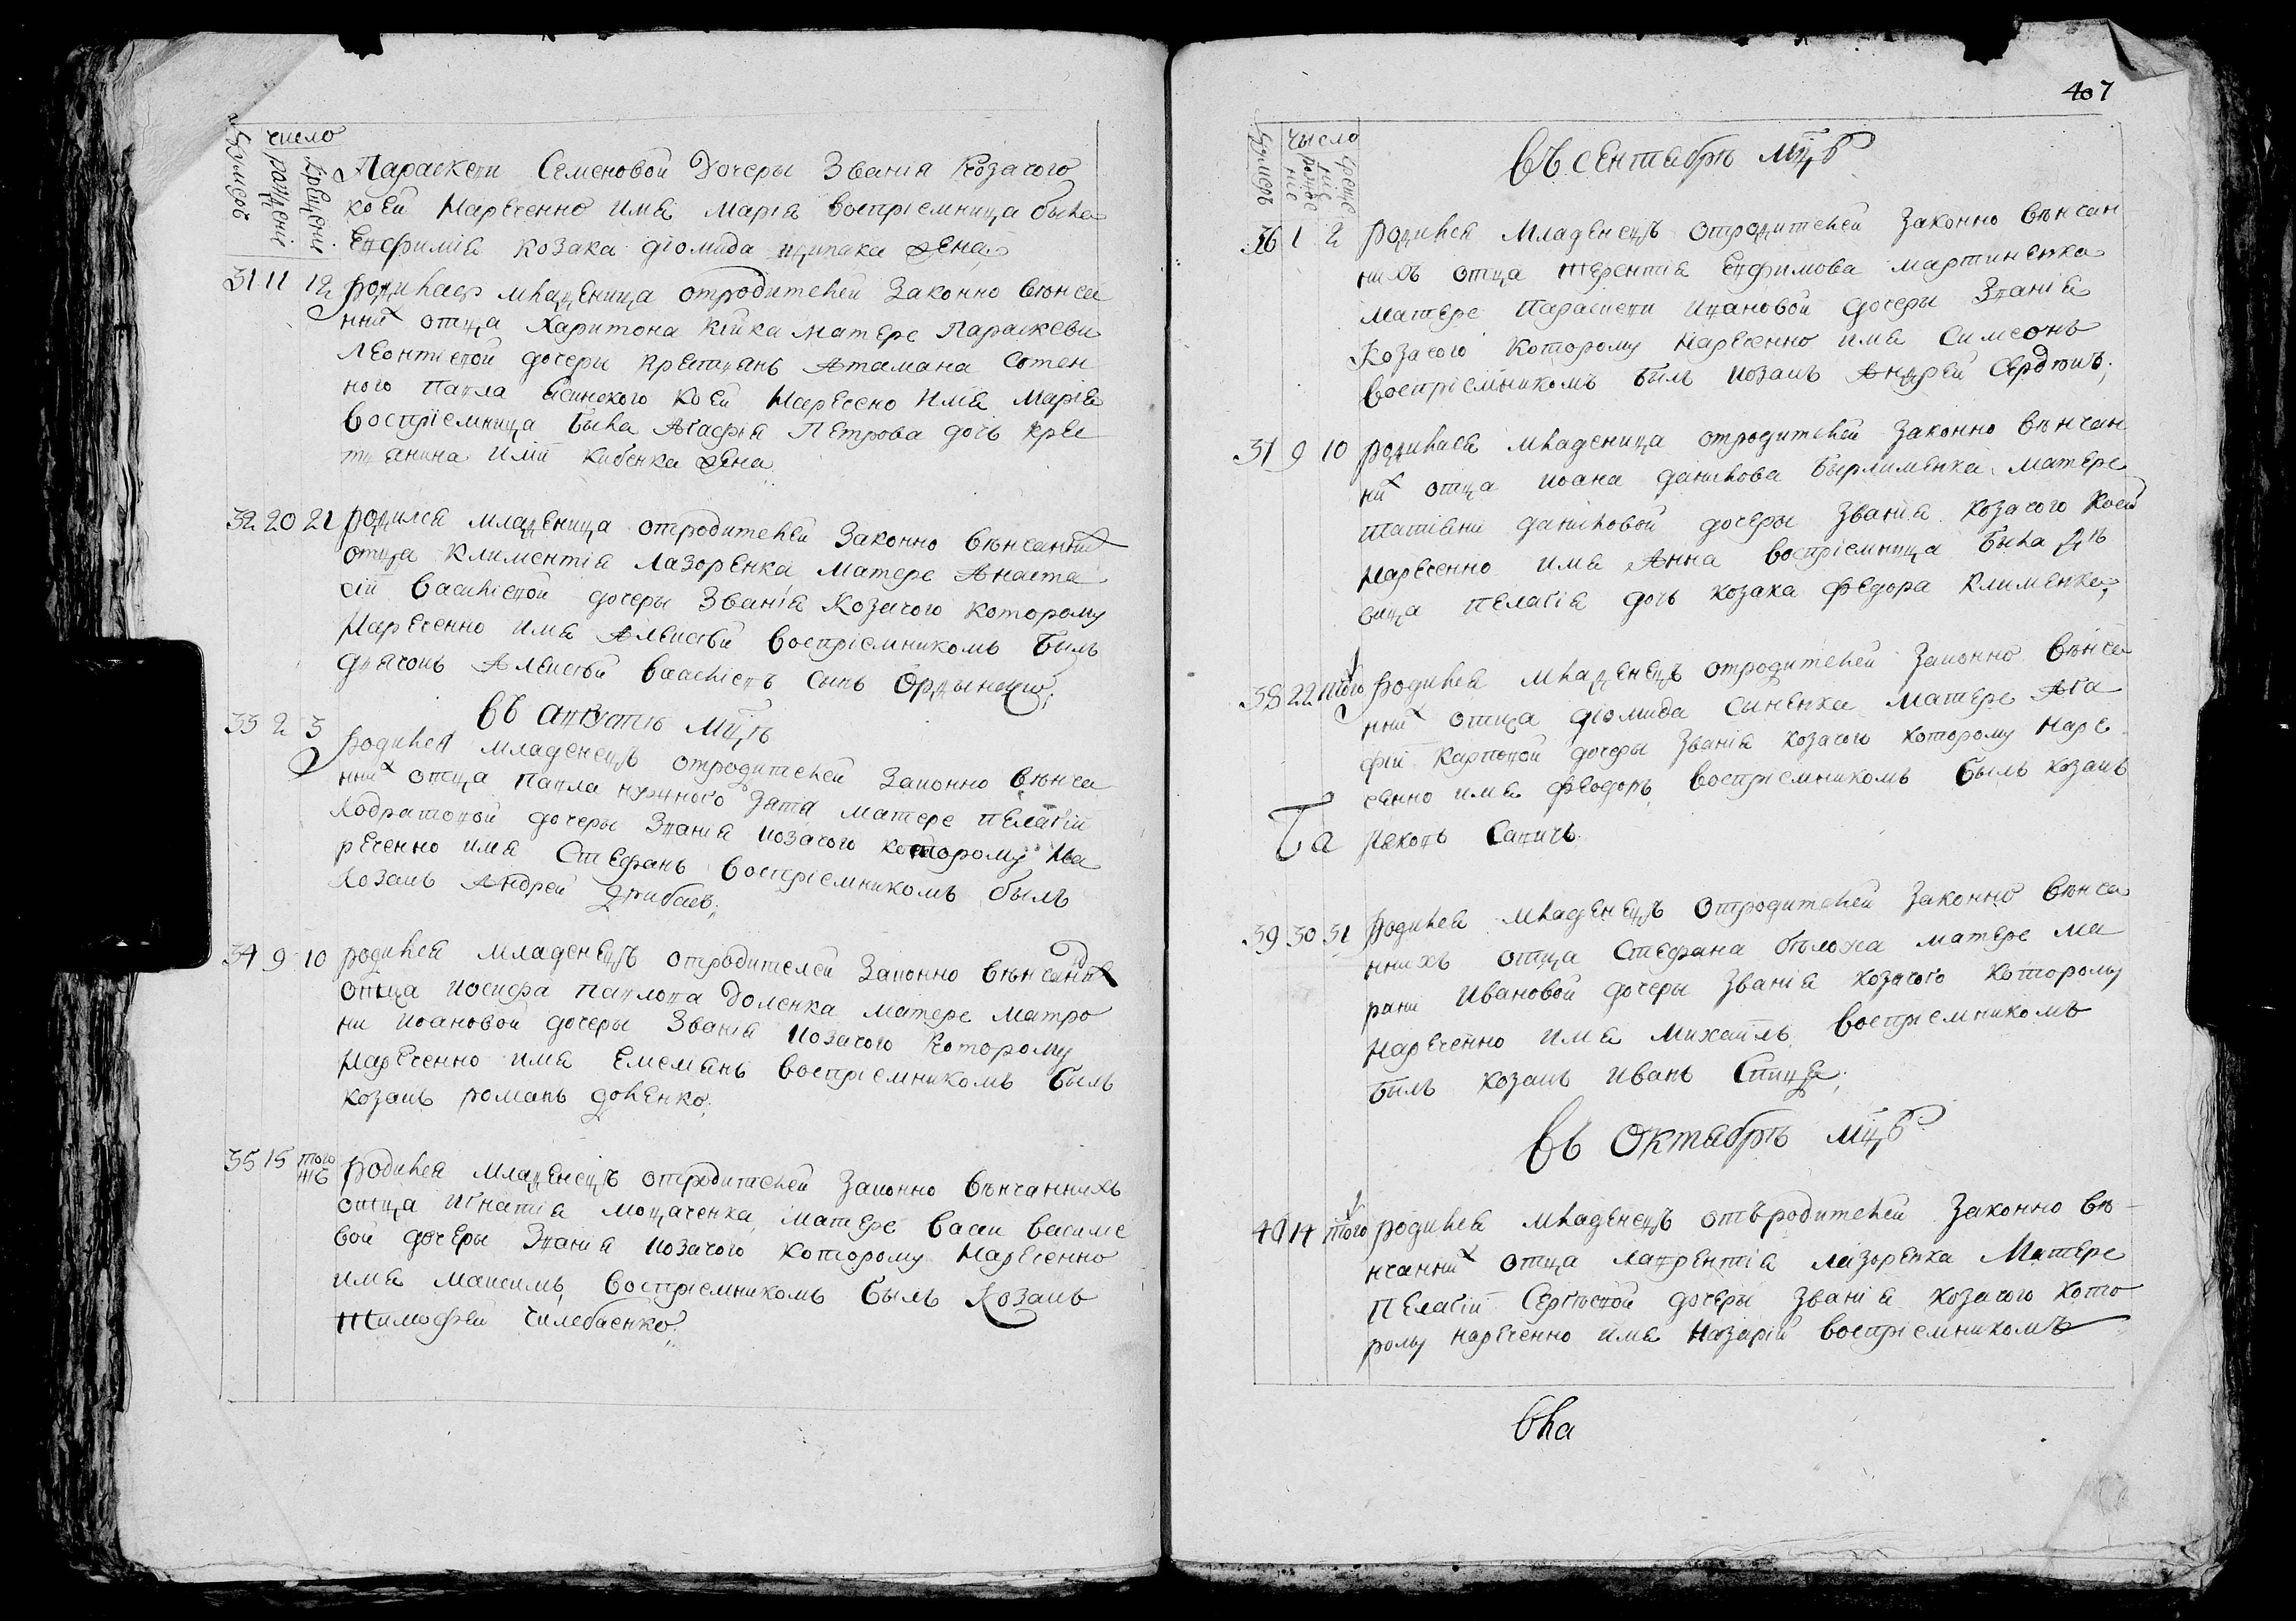 число
нумеръ рожденіе крещеніе
Параскеви Семеновой Дочеры Званія Козачого
коей Нареченно имя Марія воспріемница была
Евфимія козака діомида жена
31 11 12 родилася младеница отродителей Законно венча
нних отца Харитона Кійка матере Параскеви
Леонтіевой дочеры крестянъ Атамана Сотен
ного Павла коей Наречено имя Марія
воспріемница была Агафія Петрова дочь крес
тянина Иліи Кибенка жена
32 20 21 родился младеница отродителей Законно венчанних
отца Климентія Лазоренка матере Анаста
сіи василіевой дочеры Званія Козачого которому
Нареченно имя Алексей воспріемникомъ былъ
дячокъ Алексей василіевъ синъ
въ августе мцъ
33 2 3 родился младенецъ отродителей Законно венча
нних отца павла зятя матере пелагіи
Кодратовой дочеры Званія козачого которому На
реченно имя Стефанъ воспріемникомъ былъ
козакъ Андрей
34 9 10 родился младенецъ отродителей Законно венчаних
отца иосифа павлова доленка матере матро
ни иоановой дочеры Званія козачого которому
нареченно имя Емеліянъ воспріемникомъ былъ
козакъ романъ доленко
35 15 того же родился младенецъ отродителей Законно венчаннихъ
отца Игнатія матере васи василе
вой дочеры Званія козачого которому нареченно
имя максимъ воспріемникомъ былъ Козакъ
Тимофей Чилебаенко
407
число
нумеръ рожденіе крещеніе
въ сентабре мцъ
36 1 2 родился младенецъ отродителей Законно венчан
нихъ отца терентія Евфимова мартиненка
матере параскеви ивановой дочеры Званія
Козачого которому нареченно имя Симеонъ
воспріемникомъ былъ козакъ Андрей Сердюкъ
37 9 10 родилася младеница отродителей Законно венчан
них отца иоана данилова бырлименка матере
татіани даниловой дочеры званія козачого коей
нареченно имя Анна воспріемница была де
вица пелагія дочь козака федора клименка
38 22 того родился младенецъ отродителей Законно венча
нних отца діомида Синенка матере Ага
фіи Карповой дочеры званія козачого которому наре
ченно имя феодоръ воспріемникомъ былъ козакъ
яковъ Савичъ
39 30 31 родился младенецъ отродителей Законно венча
ннихъ отца Стефана матере ма
рини ивановой дочеры званія козачого которому
нареченно имя михаилъ воспріемникомъ
билъ козакъ иванъ Спица
въ октабре мцъ
40 14 того родился младенецъ отъродителей Законно ве
нчанних отца лаврентія лазоренка матере
пелагіи Сергіевой дочеры званія козачого кото
рому нареченно имя назарій воспріемникомъ
бла